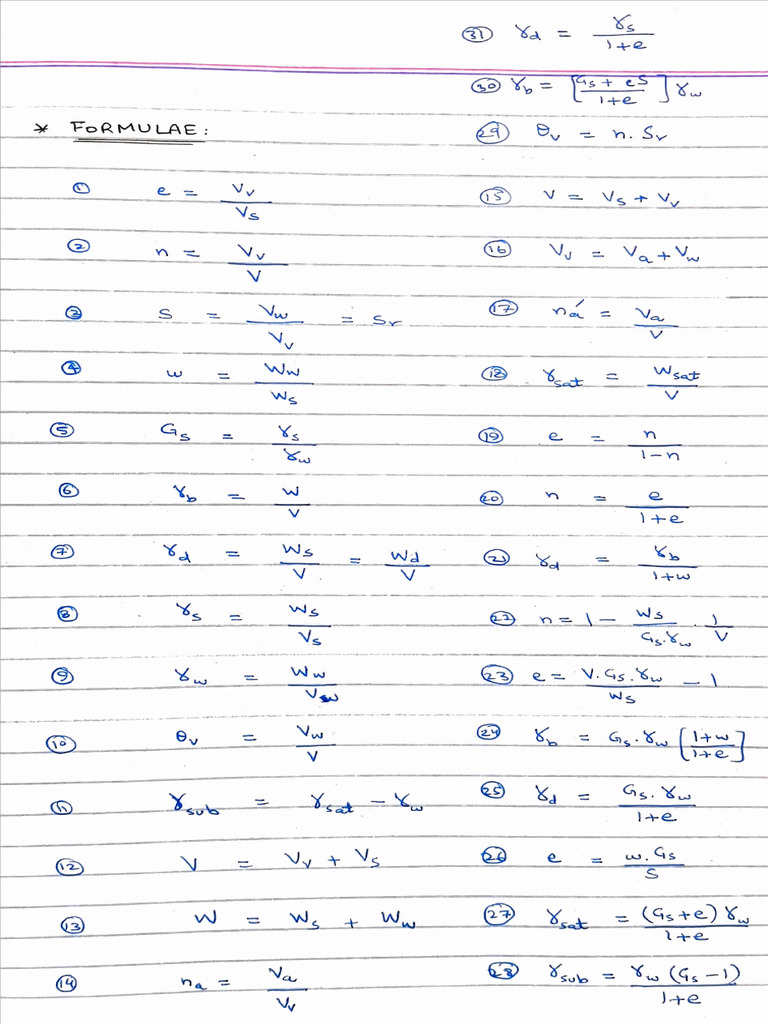 (31) γd = γs / 1+e
(30) γb = [Gs + eS / 1+e] γw
* FORMULAE:
(29) θv = n. Sr
(1) e = Vv / Vs
(15) V = Vs + Vv
(2) n = Vv / V
(16) Vv = Va + Vw
(3) S = Vw / Vv = Sr
(17) na' = Va / V
(4) w = Ww / Ws
(18) γsat = Wsat / V
(5) Gs = γs / γw
(19) e = n / 1-n
(6) γb = W / V
(20) n = e / 1+e
(7) γd = Ws / V = Wd / V
(21) γd = γb / 1+w
(8) γs = Ws / Vs
(22) n = 1 - Ws / Gs.γw . 1 / V
(9) γw = Ww / Vw
(23) e = V.Gs.γw / Ws - 1
(10) θv = Vw / V
(24) γb = Gs.γw [1+w / 1+e]
(11) γsub = γsat - γw
(25) γd = Gs.γw / 1+e
(12) V = Vv + Vs
(26) e = w.Gs / S
(13) W = Ws + Ww
(27) γsat = (Gs+e) γw / 1+e
(14) na = Va / Vv
(28) γsub = γw (Gs-1) / 1+e